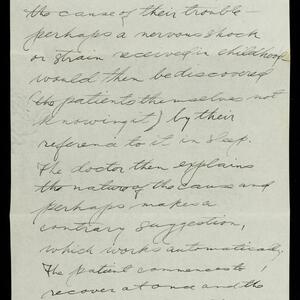 the cause of their trouble -
perhaps a nervous shock
or strain received in childhood
would then be discovered
(the patients themselves not
knowing it) by their
reference to it in sleep.
The doctor then explains
the nature of the cause and
perhaps makes a
contrary suggestion,
which works automatically.
The patient commences to
recover at once and the